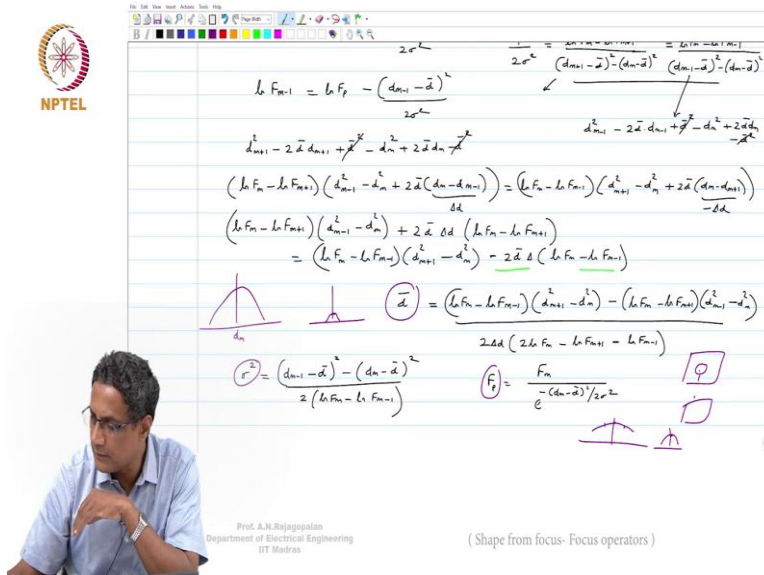 File Edit View Insert Actions Tools Help
Page Width
B I
NPTEL
2σ²
1/2σ² = ln Fm - ln Fm+1 / (dm+1 - d̄)² - (dm - d̄)² = ln Fm - ln Fm-1 / (dm-1 - d̄)² - (dm - d̄)²
ln Fm-1 = ln Fp - (dm-1 - d̄)² / 2σ²
d²m-1 - 2d̄·dm-1 + d̄² - dm² + 2d̄dm - d̄²
d²m+1 - 2d̄dm+1 + d̄² - dm² + 2d̄dm - d̄²
(ln Fm - ln Fm+1)(d²m-1 - d²m + 2d̄(dm - dm-1)) = (ln Fm - ln Fm-1)(d²m+1 - d²m + 2d̄(dm - dm+1))
Δd -Δd
(ln Fm - ln Fm+1)(d²m-1 - d²m) + 2d̄ Δd (ln Fm - ln Fm+1)
= (ln Fm - ln Fm-1)(d²m+1 - d²m) - 2d̄ Δ(ln Fm - ln Fm-1)
d̄ = (ln Fm - ln Fm-1)(d²m+1 - d²m) - (ln Fm - ln Fm+1)(d²m-1 - d²m) / 2Δd (2 ln Fm - ln Fm+1 - ln Fm-1)
dm
σ² = (dm-1 - d̄)² - (dm - d̄)² / 2(ln Fm - ln Fm-1)
Fp = Fm / e^-(dm - d̄)²/2σ²
Prof. A.N.Rajagopalan
Department of Electrical Engineering
IIT Madras
( Shape from focus- Focus operators )